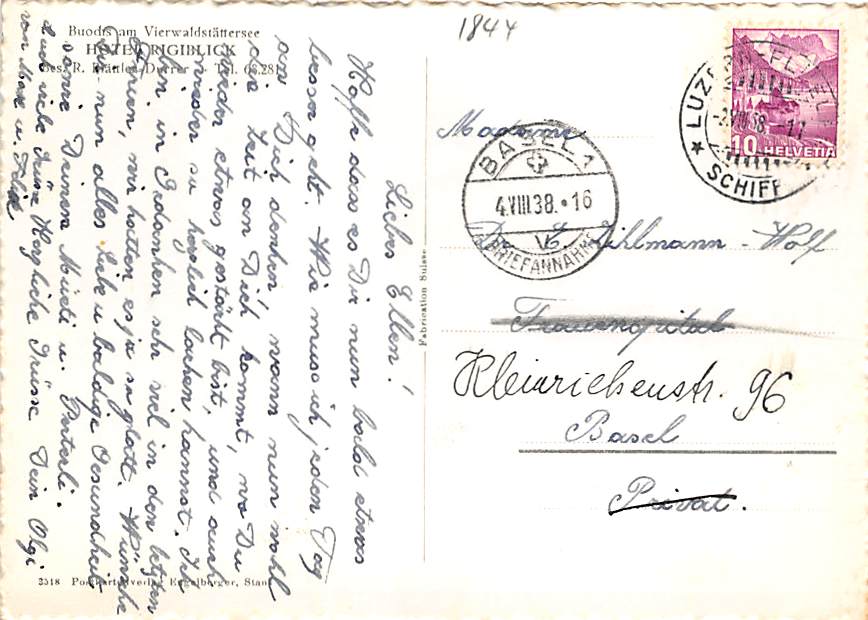 1844
Buochs am Vierwaldstättersee
HOTEL RIGIBLICK
Bes. R. Tel.
Liebes Ellen!
Hoffe dass es Dir nun bald etwas
besser geht. Wie muss ich jeden Tag
an Dich denken, wann nun wohl
die Zeit an Dich kommt, wo Du
wieder etwas gestärkt bist, und auch
wieder so herzlich lachen kannst. Ich
bin in Gedanken sehr viel in den letzten
wir hatten es ja so glatt. Wünsche
Dir nun alles liebe u. baldige Gesundheit
sowie Deinem Müeti u. Peterli.
Auch viele Grüsse Herzliche Grüsse Dein Olgi
von Max u.
2518 Postkartenverlag Engelberger, Stans
Fabrication Suisse
Madame
E. Dihlmann-Wolf
Frauenspital
Kleinrichenstr. 96
Basel
Privat.
BASEL 1
4.VIII.38.•16
BRIEFANNAHME
LUZERN-FLÜELEN
-2.VIII.38. 17
SCHIFF
10 HELVETIA